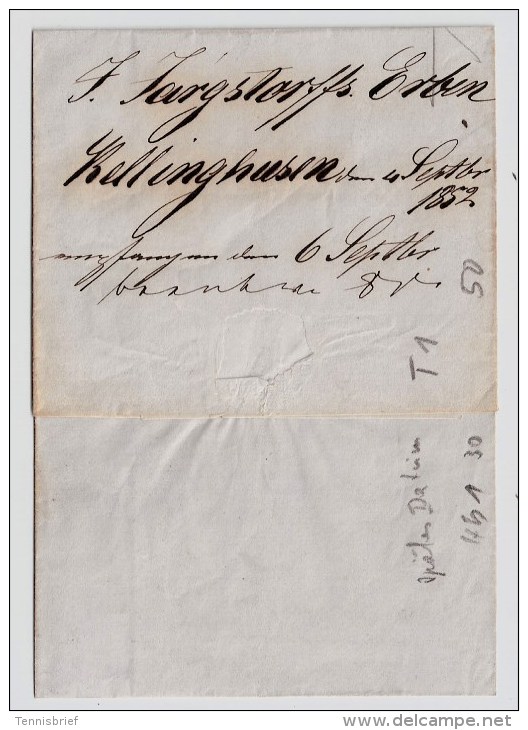 J. Jargstorffs. Erben
Kellinghusen den 4 Septbr
1852
empfangen den 6 Septbr
beantw.
50
T 1
spätes Datum
30
Tennisbrief
delcampe.net